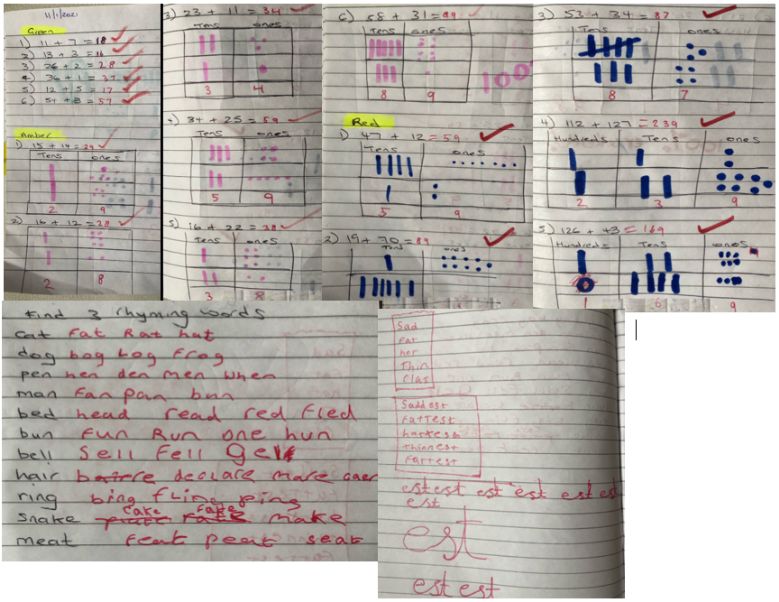 11/1/2021
Green
1) 11 + 7 = 18
2) 13 + 3 = 16
3) 26 + 2 = 28
4) 36 + 1 = 37
5) 12 + 5 = 17
6) 54 + 3 = 57
Amber
1) 15 + 14 = 29
Tens ones
2 9
2) 16 + 12 = 28
2 8
3) 23 + 11 = 34
Tens ones
3 4
4) 34 + 25 = 59
Tens ones
5 9
5) 16 + 22 = 38
Tens ones
3 8
6) 58 + 31 = 89
Tens ones
8 9
100
Red
1) 47 + 12 = 59
Tens ones
5 9
2) 19 + 70 = 89
Tens ones
3) 53 + 34 = 87
Tens ones
8 7
4) 112 + 127 = 239
Hundreds Tens ones
2 3 9
5) 126 + 43 = 169
Hundreds Tens ones
1 6 9
Find 3 rhyming words
cat fat Rat hat
dog bog log frog
pen hen den men when
man Fan pan
bed head read red fled
bun fun Run one hun
bell Sell Fell
hair declare mare
ring bing fling ping
snake cake fake make
meat feat peat seat
Sad
Fat
Thin
Saddest
Fattest
thinnest
est est est est est est
est
est
est est